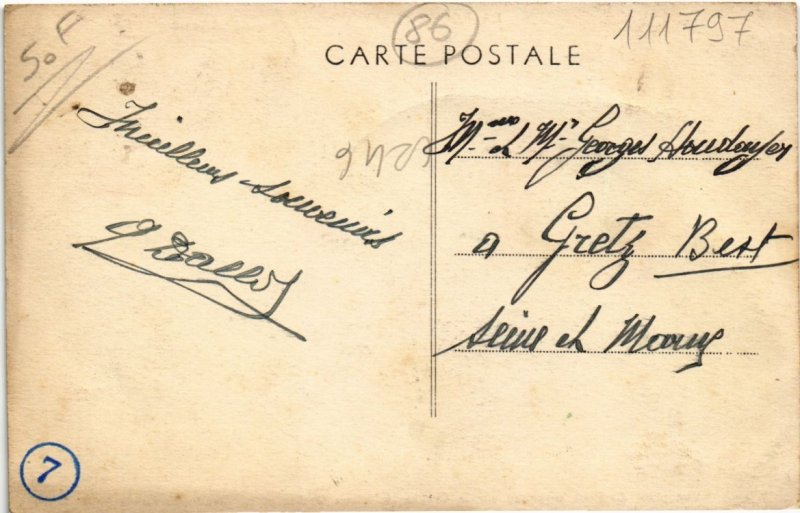 50F
86
111797
CARTE POSTALE
Meilleurs souvenirs
Mme et Mr Georges
a Gretz Best
Seine et Marne
7